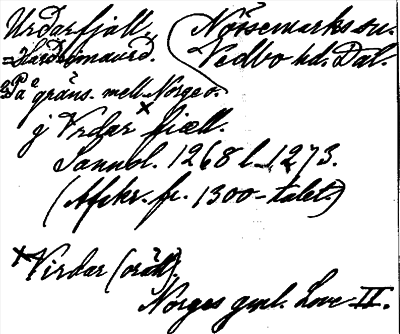 Urdarfjäll. Nössemarks sn.
Vedbo hd. Dal.
På gräns. mell. Norge o.
j Vrdar x fiæll.
Sannol. 1268 l. 1273.
(Afskr. fr. 1300-talet.)
x Virdar (orätt).
Norges gml. Love II.